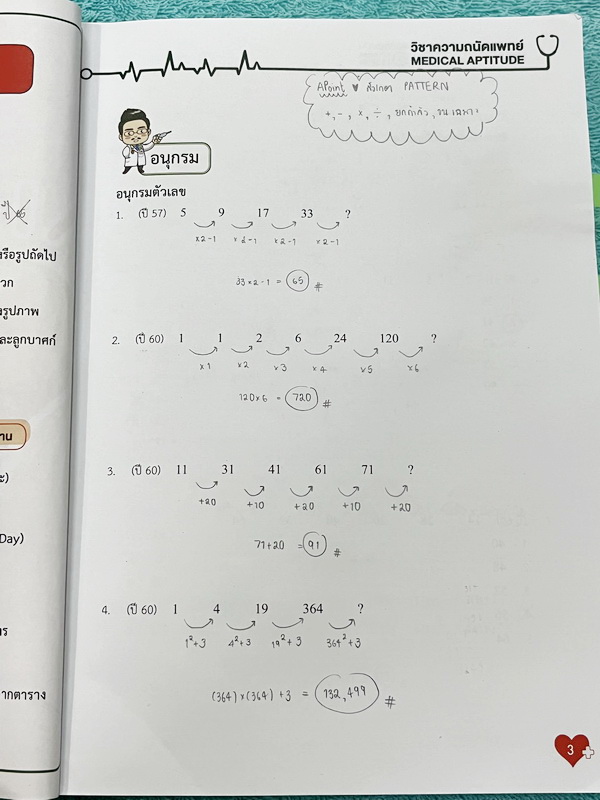 วิชาความถนัดแพทย์
MEDICAL APTITUDE
APoint สังเกตา PATTERN
+, -, ×, ÷, ยกกำลัง,
อนุกรม
อนุกรมตัวเลข
1. (ปี 57) 5 9 17 33 ?
×2-1 ×2-1 ×2-1 ×2-1
33×2-1 = 65 #
2. (ปี 60) 1 1 2 6 24 120 ?
×1 ×2 ×3 ×4 ×5 ×6
120×6 = 720 #
3. (ปี 60) 11 31 41 61 71 ?
+20 +10 +20 +10 +20
71+20 = 91 #
4. (ปี 60) 1 4 19 364 ?
1²+3 4²+3 19²+3 364²+3
(364)×(364)+3 = 132,499 #
3
รือรูปถัดไป
วก
งรูปภาพ
ละลูกบาศก์
าน
ะ)
Day)
าร
ากตาราง